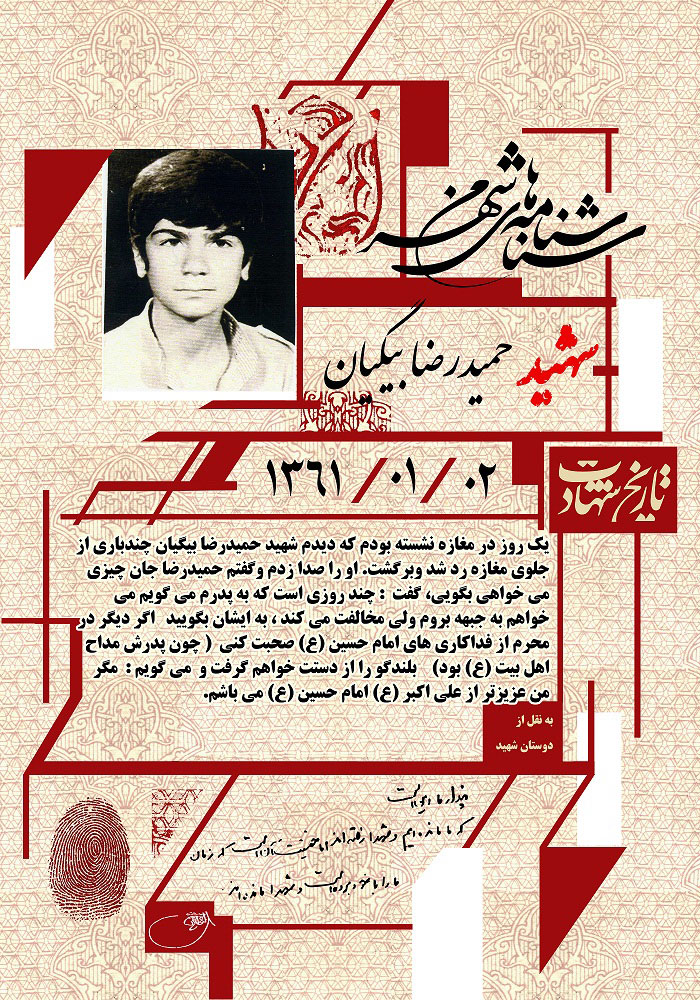 شناسنامه های شهر من
شهید حمیدرضا بیگیان
تاریخ شهادت
۱۳۶۱/۰۱/۰۲
یک روز در مغازه نشسته بودم که دیدم شهید حمیدرضا بیگیان چندباری از
جلوی مغازه رد شد وبرگشت. او را صدا زدم وگفتم حمیدرضا جان چیزی
می خواهی بگویی، گفت : چند روزی است که به پدرم می گویم می
خواهم به جبهه بروم ولی مخالفت می کند ، به ایشان بگویید اگر دیگر در
محرم از فداکاری های امام حسین (ع) صحبت کنی ( چون پدرش مداح
اهل بیت (ع) بود) بلندگو را از دستت خواهم گرفت و می گویم : مگر
من عزیزتر از علی اکبر (ع) امام حسین (ع) می باشم.
به نقل از
دوستان شهید
پندار ما این است
که ما مانده ایم و شهدا رفته اند اما حقیقت آن است که زمان
ما را با خود برده است و شهدا مانده اند